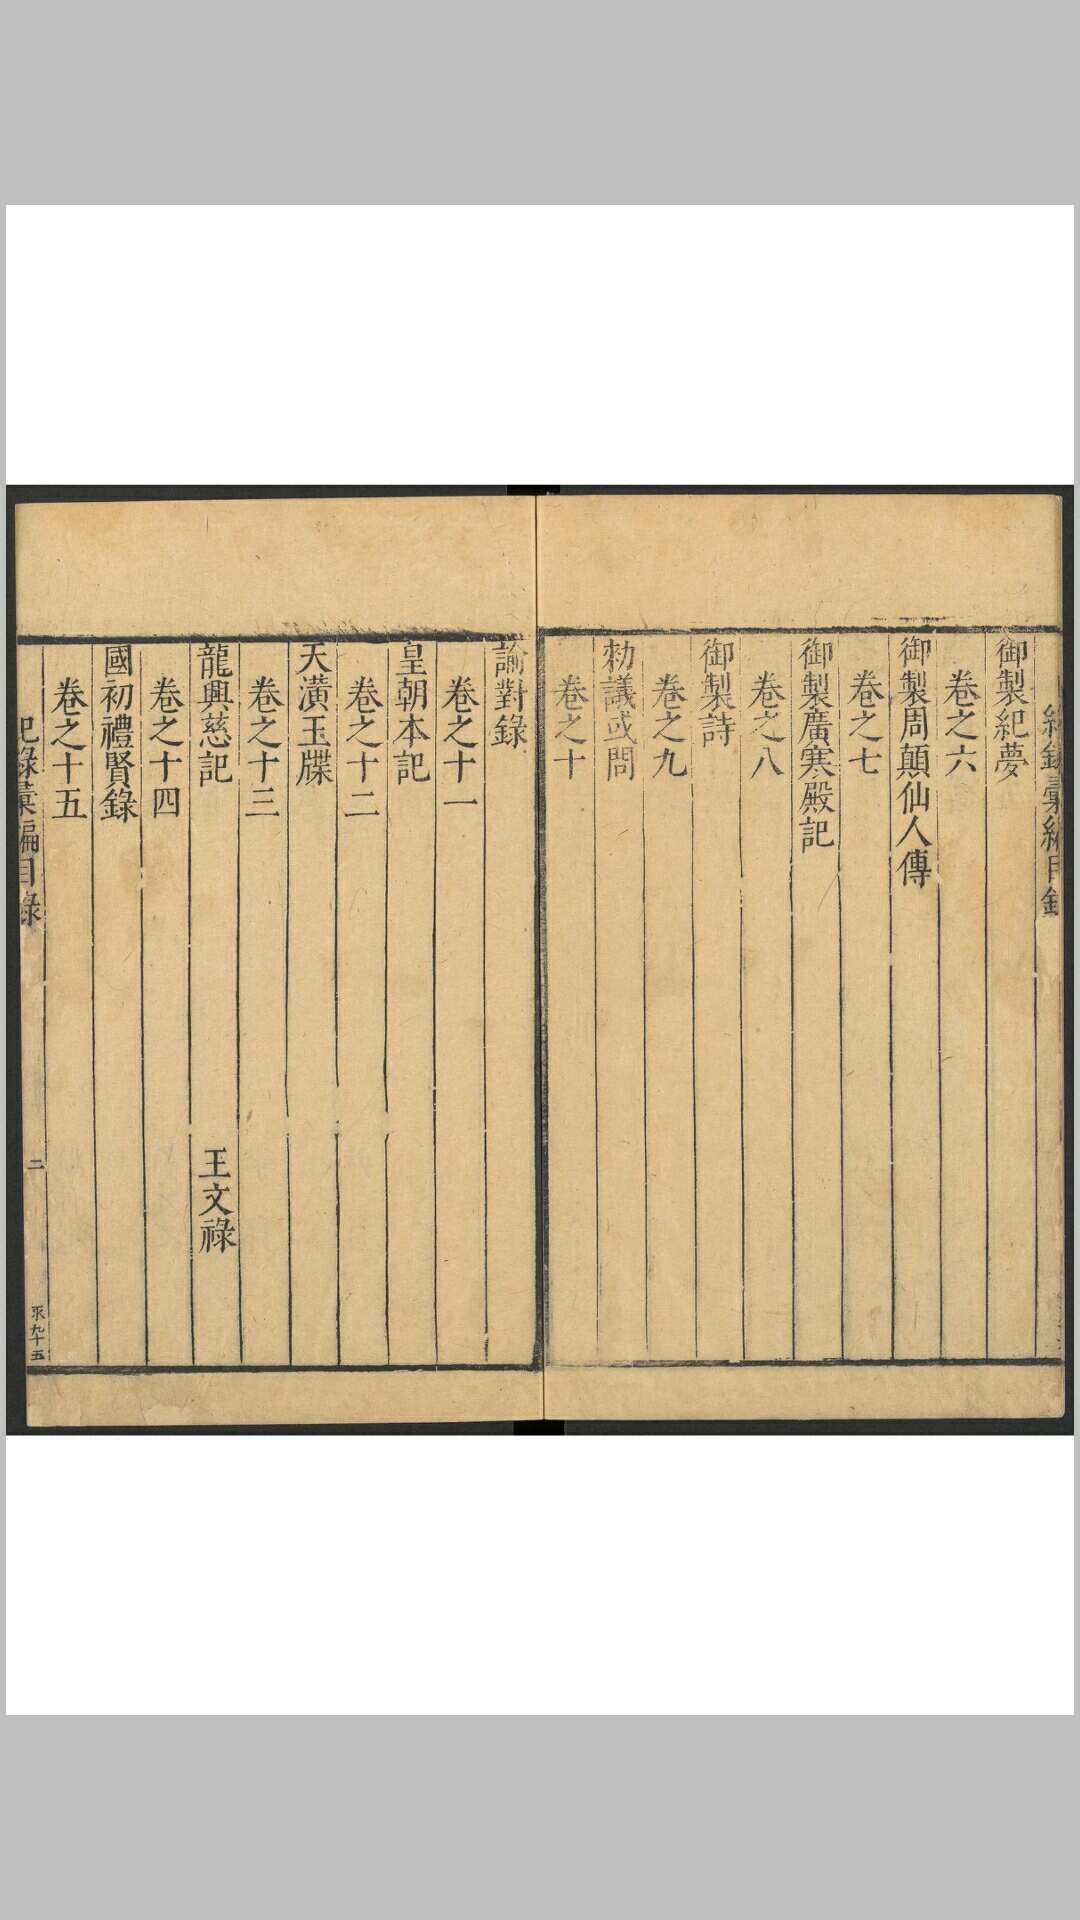 紀錄彙編目錄
御製紀夢
卷之六
御製周顛仙人傳
卷之七
御製廣寒殿記
卷之八
御製詩
卷之九
勑議或問
卷之十
諭對錄
卷之十一
皇朝本記
卷之十二
天潢玉牒
卷之十三
龍興慈記 王文祿
卷之十四
國初禮賢錄
卷之十五
紀錄彙編目錄 二